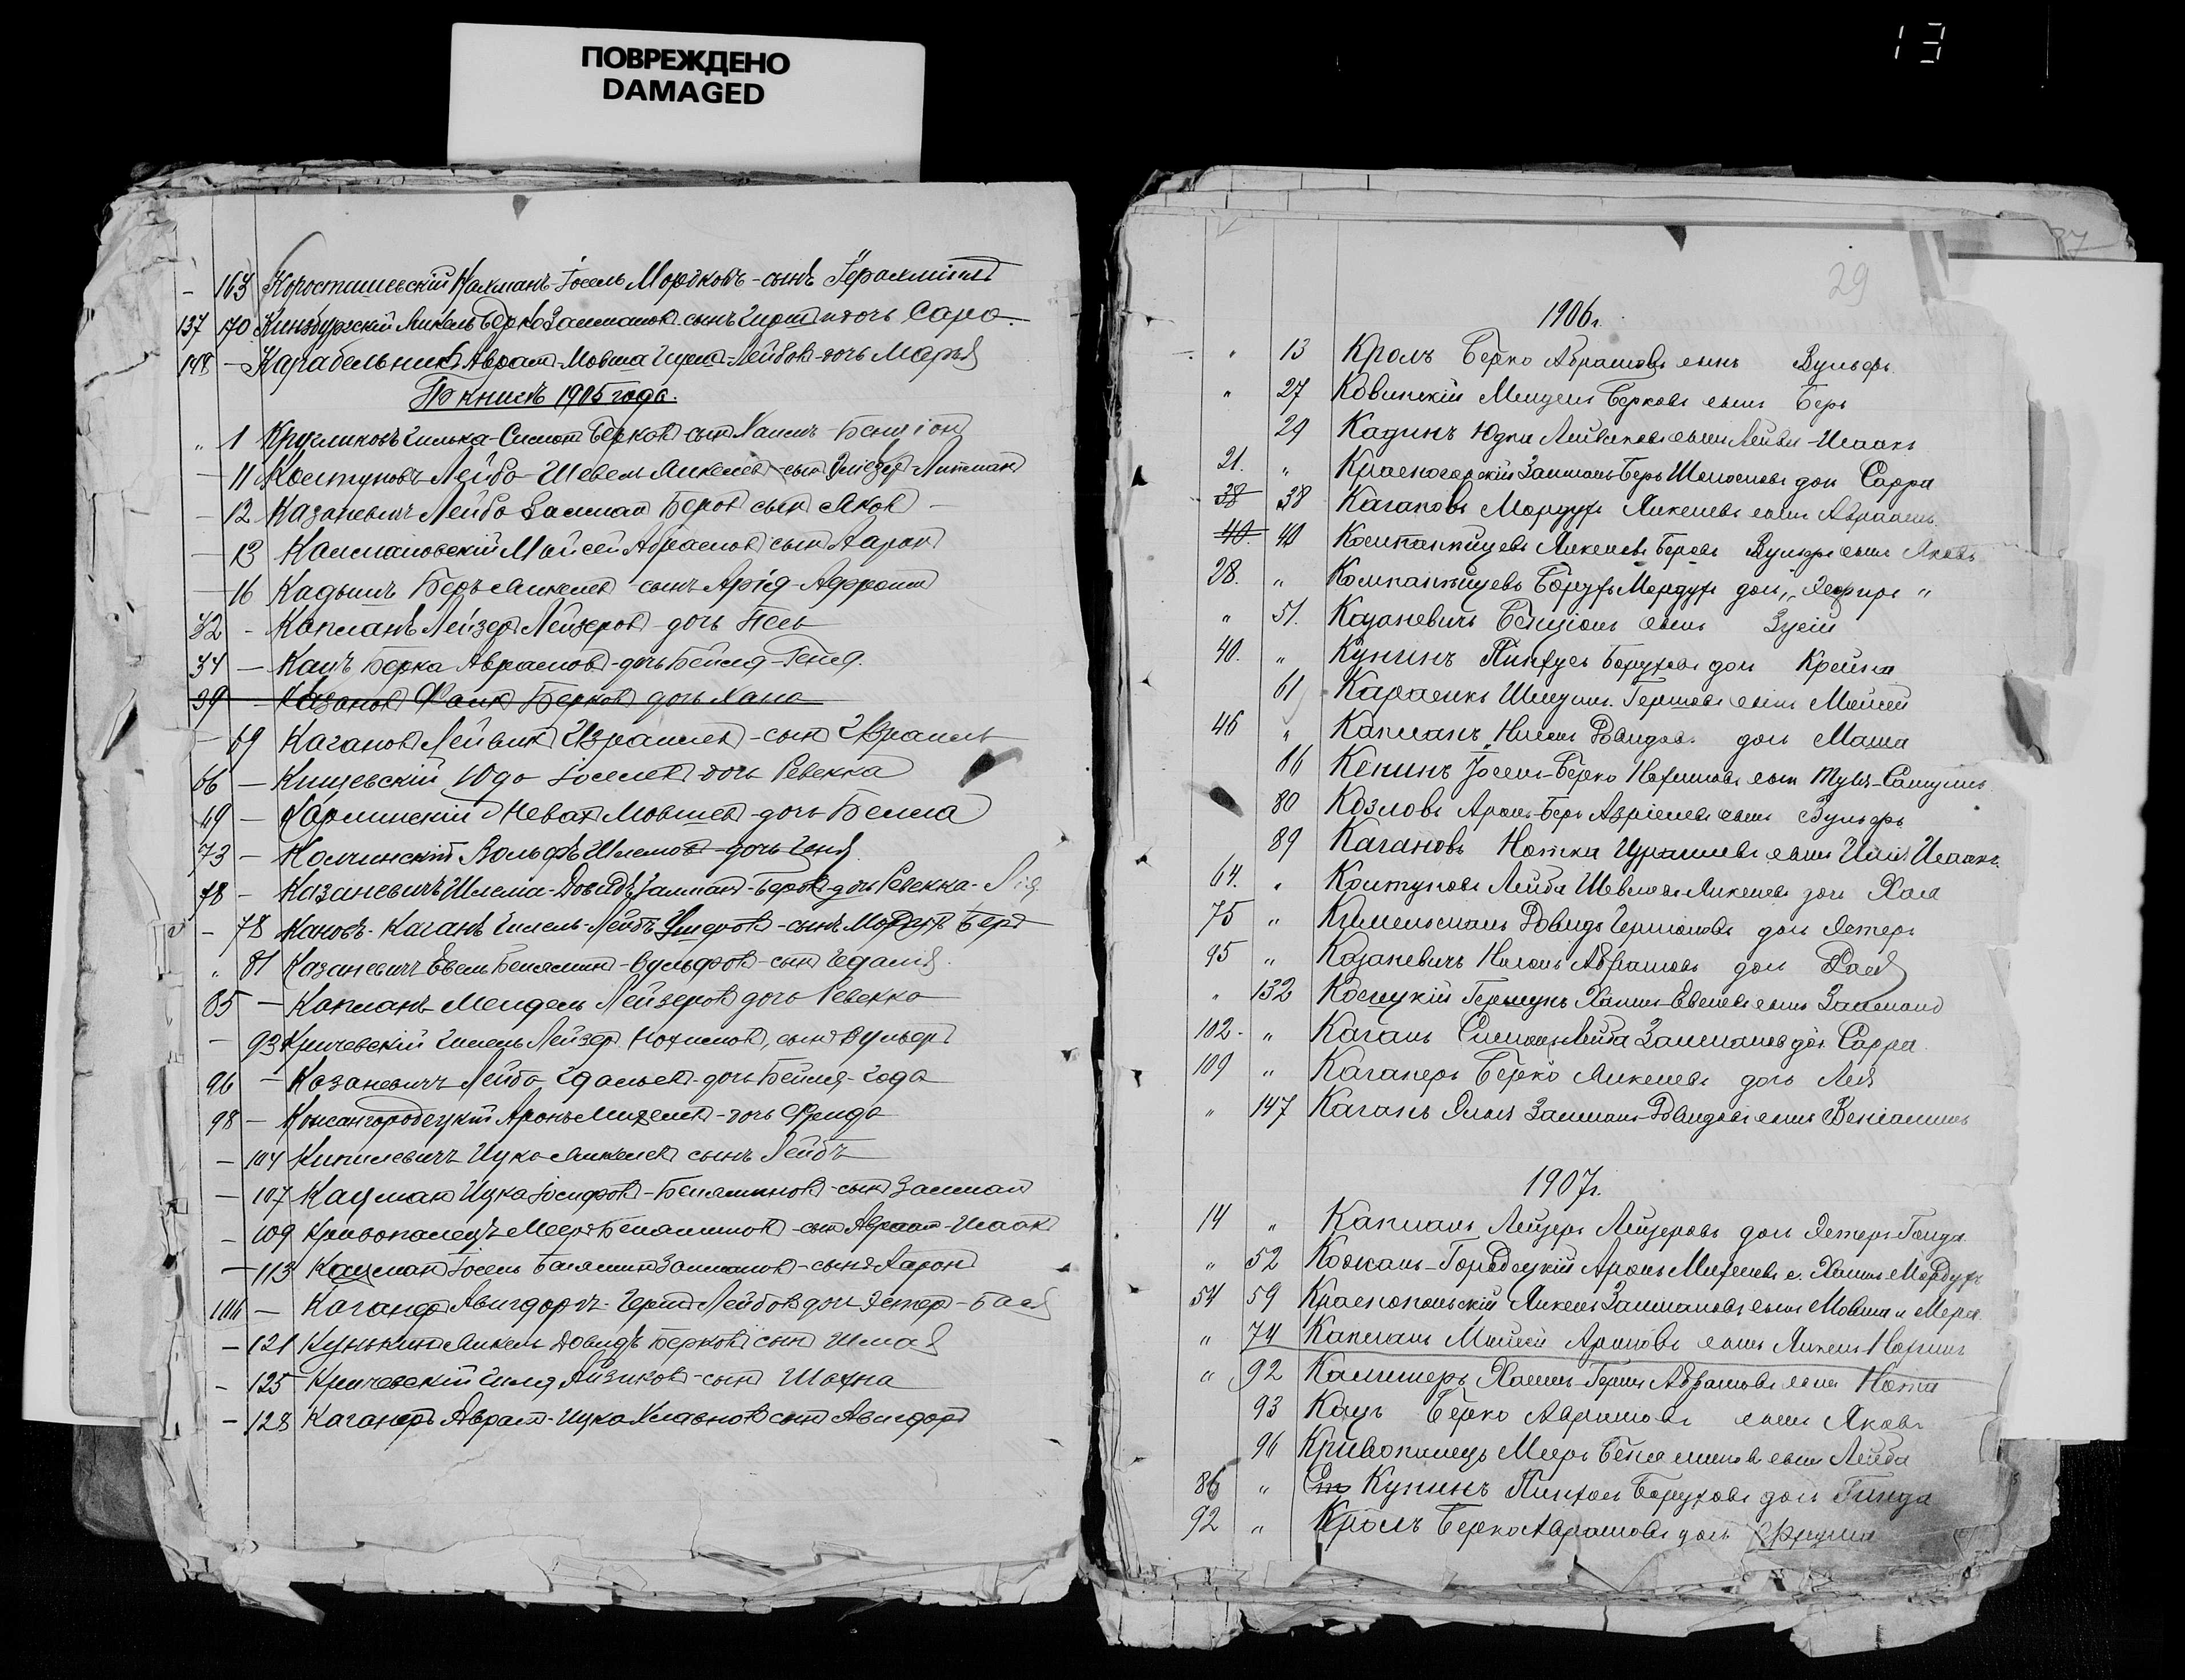 ПОВРЕЖДЕНО
DAMAGED
13
- 163 Коросташевскій Калманъ-Іосель Мордковъ-сынъ
137 170 Берко Залмановъ сынъ Гирш и дочь Сара
148 - Карабельникъ Авраам-Мовша Гирш-Лейбов-дочь Марья
По книгѣ 1905 года.
" 1 Кругликовъ Берков сын Хаим-Бенціон
- 11 Костуновъ Лейба-Шевель Янкелев-сын Элiезер-Литман
- 12 Казаневичъ Лейба Залман Беров сын Яков
- 13 Калмановскій Мойсей Абрамов сын Аарон
- 16 Кадышъ Беръ Янкелев-сынъ Арія-Афроим
32 - Капланъ Лейзер Лейзеров-дочь Песь
34 - Кацъ Берка Аврамов-дочь Бейля-Геня.
39 - Казанов Файк Берков дочь Хана
- 69 Каганов Лейвик Израилев-сын Израиль
66 - Кищевскій Юда Іоселев-дочь Ревекка
49 - Мовшев-дочь Белла
73 - Колчинскій Вольфъ Шлемов-дочь Геня
78 - Казаневичъ Шлема-Довидъ Залман-Беров-дочь Ревекка-Лія
- 78 Каганъ Гилель-Лейбъ Ушеров-сынъ Мордух Бер
" 81 Казаневичъ Евель Беньямин-Вульфов-сын Гедалія
85 - Капланъ Мендель Лейзеров дочь Ревекка
- 93 Кричевскій Лейзер Нохимов, сын Вульф
96 - Казаневичъ Лейба Гдальев-дочь Бейля-Года
98 - Кожангородецкій Аронъ Михелев-дочь Фрейда
- 104 Кипилевичъ Ицка Янкелев сынъ Лейбъ
- 107 Кацман Ицка Іосифов-Беньяминов-сын Залман
- 109 Кривопалецъ Меер Беньяминов-сын Авраам-Исаак
- 113 Кацман Іосель Беньямин Залманов-сын Аарон
- Каганер Авигдоръ-Герш Лейбов дочь Эстер-Бася
- 121 Кунькин Янкель Довидъ Берков сын Шмая
- 125 Кричевскій Гиля Айзиков-сын Шахна
- 128 Каганер Авраам-Ицка Хлавнов сын Авигдор
29
1906г.
" 13 Кролъ Берко Абрамовъ сынъ Вульфъ
" 27 Ковинскій Мендель Берковъ сынъ Беръ
29 Кадинъ Юдка Лейвиковъ сынъ Лейви-Исаакъ
21. " Красногорскій Залманъ-Беръ дочь Сарра
38 38 Кагановъ Мордухъ Янкелевъ сынъ Абрамъ
40. 40 Компаніицевъ Янкелевъ Беровъ Вульфъ сынъ Яковъ
28. " Компаніицевъ Борухъ Мордухъ дочь "Эсфирь"
" 51. Казаневичъ Бенціонъ сынъ Зусій
40. " Кунинъ Пинхусъ Боруховъ дочь Крейна
61 Карасикъ Гершовъ сынъ Мойсей
46 " Капланъ Нисель Довидовъ дочь Маша
66 Кенинъ Іосель-Берко Нохимовъ сынъ Тувъ-Самуилъ
80 Козловъ Аронъ-Беръ сынъ Вульфъ
89 Кагановъ Нотка Израилевъ сынъ Илія Исаакъ
64. " Костуновъ Лейба Шевелевъ Янкелевъ дочь Хая
75 " Кимельманъ Довидъ Гершоновъ дочь Эстеръ
95 " Казаневичъ Нисонъ Абрамовъ дочь Хая
" 132 Косцукій Гершунъ Хаимъ-Евелевъ сынъ Залманъ
102. " Каганъ Симонъ Лейба Залмановъ дочь Сарра
109 " Каганеръ Берко Янкелевъ дочь Лея
" 147 Каганъ Элья Залманъ-Довидовъ сынъ Веніаминъ
1907г.
14 " Капланъ Лейзеръ Лейзеровъ дочь Эстеръ-Гинда
" 52 Кожанъ-Городецкій Аронъ Михелевъ с. Хаимъ Мордухъ
54 59 Краснопольскій Янкель Залмановъ сынъ Мовша и Мера
" 74 Капланъ Мойсей Ароновъ сынъ Янкель Нохимъ
" 92 Хаимъ-Герша Абрамовъ сынъ Нота
93 Кацъ Берко Абрамовъ сынъ Яковъ
96 Кривопалецъ Мееръ Беньяминовъ сынъ Лейба
86 " Кунинъ Пинхосъ Боруховъ дочь Гинда
92 " Кролъ Берко Абрамовъ дочь Фрума